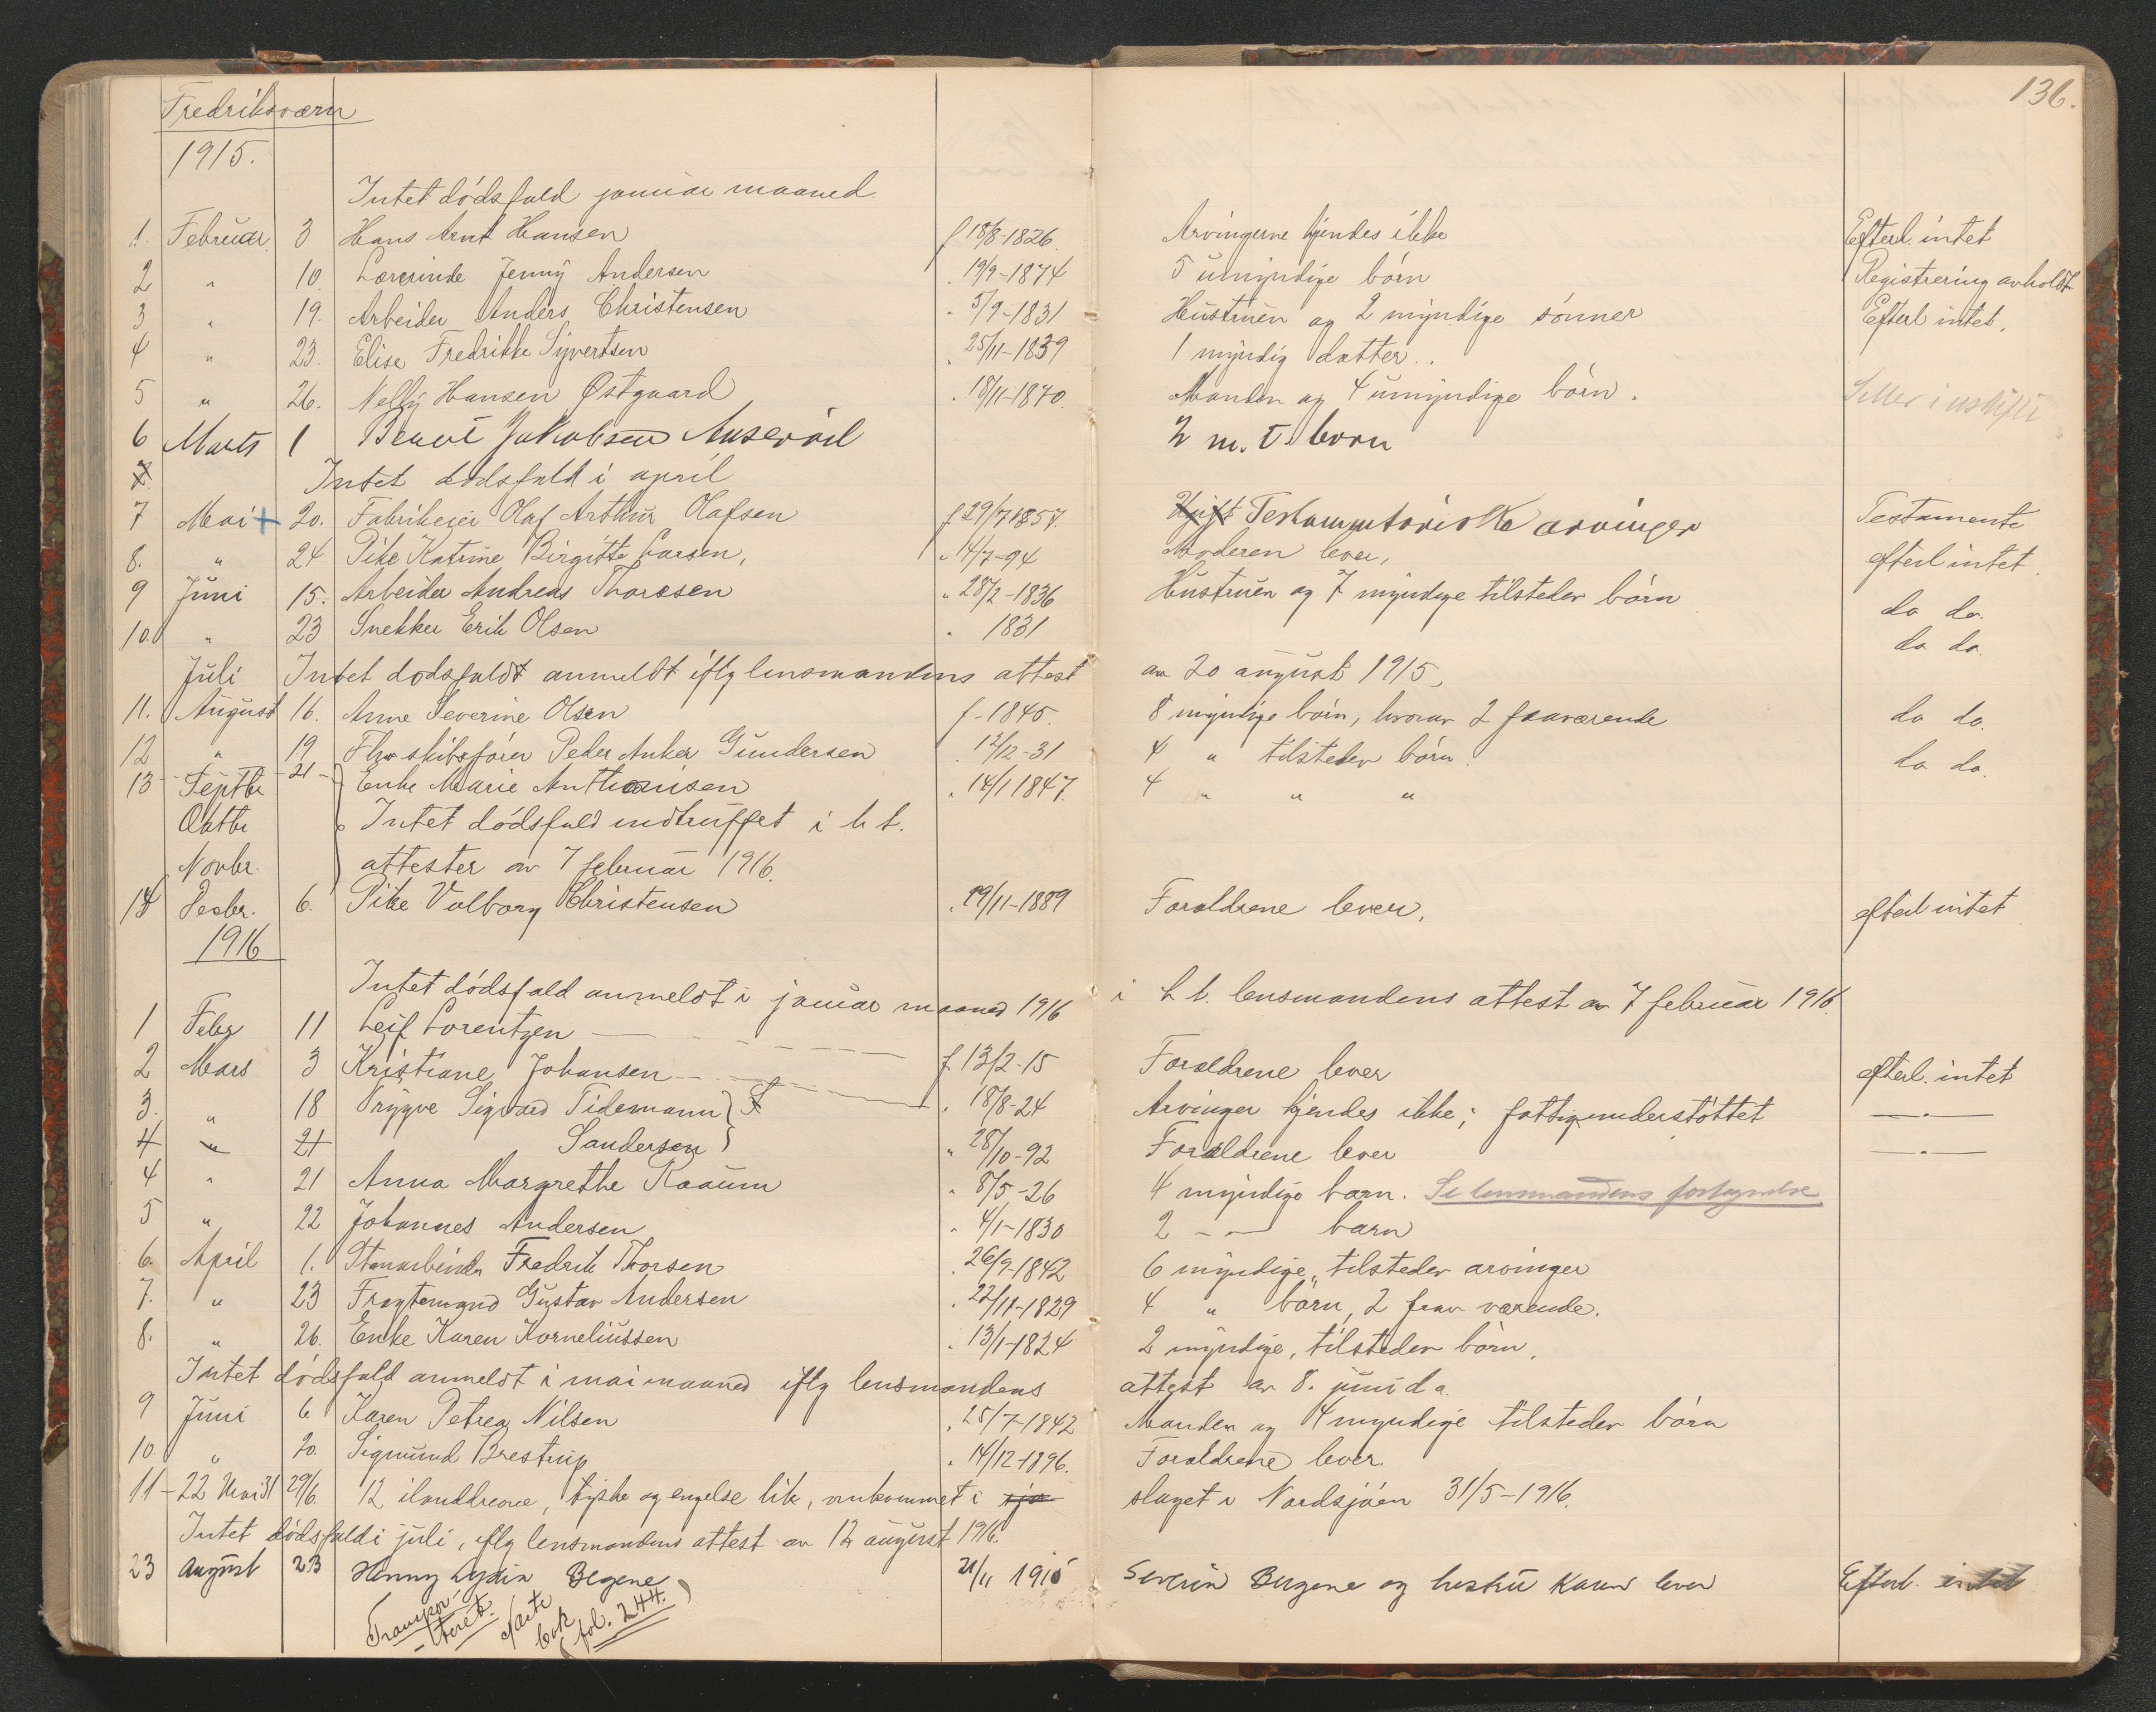 136.
Fredriksværn
1915.
Intet dödsfald januar maaned.
1. Februar 3 Hans Arnt Hansen f 18/8-1826. Arvingerne kjendes ikke Efterl. intet
2 " 10. Lærerinde Jenny Andersen " 19/9-1874 5 umyndige börn Registrering avholdt
3 " 19. Arbeider Anders Christensen " 5/9-1831 Hustruen og 2 myndige sönner Efterl intet.
4 " 23. Elise Fredrikke Syvertsen " 25/11-1839 1 myndig datter..
5 " 26. Nelly Hansen Østgaard " 18/11-1870. Manden og 4 umyndige börn.
6 Marts 1 Jakobsen 2 m. t. born
7 Intet dödsfald i april
7 Mai + 20. Fabrikeier Olaf Arthur Olafsen f 29/7 1857. Testamentariske arvinger Testamente
8. " 24 Pike Katrine Birgitte Larsen, " 14/7-94 Moderen lever, efterl intet.
9 Juni 15. Arbeider Andreas Thoresen " 28/2-1836 Hustruen og 7 myndige tilstedev börn do do.
10. " 23 Snekker Erik Olsen " 1831 do do.
Juli Intet dodsfaldt anmeldt iflg lensmandens attest av 20 august 1915.
11. August 16. Anne Severine Olsen f - 1845. 8 myndige börn, hvorav 2 fraværende do do.
12 " 19 Fhv skibsförer Peder Anker Gundersen " 12/12-31 4 " tilstedev börn. do do.
13 - Septbr - 21 - Enke Marie Anthonisen " 14/1 1847. 4 " " "
Oktbr Intet dödsfald indtruffet i h t.
Novbr. attester av 7 februar 1916.
14 Decbr. 6. Pike Valborg Christensen " 29/11-1889 Foraldrene lever, efterl intet
1916
Intet dödsfald anmeldt i januar maaned 1916 i h t. lensmandens attest av 7 februar 1916.
1 Febr 11 Leif Lorentzen f 13/2-15 Foraldrene lever efterl. intet
2 Mars 3 Kristiane Johansen " 18/8-24 Arvinger kjendes ikke; fattigunderstöttet — " —
3. " 18 Trygve Sigvard Tidemann
4 " 21 Sandersen " 28/10-92 Foraldrene lever — " —
4 " 21 Anna Margrethe Raaum " 8/5-26 4 myndige barn. Se lensmandens
5 " 22 Johannes Andersen " 4/1-1830 2 - " - barn
6. April 1. Stenarbeider Fredrik Thorsen " 26/9-1842 6 myndige, tilstedev arvinger
7. " 23 Fragtemand Gustav Andersen " 22/11-1829 4 " börn, 2 fraværende.
8. " 26. Enke Karen Korneliussen " 13/1-1824 2 myndige, tilstedev börn,
Intet dödsfald anmeldt i mai maaned iflg lensmandens attest av 8. juni d a.
9 Juni 6 Karen Petrea Nilsen " 25/7-1842 Manden og 4 myndige tilstedev börn
10. " 20. Sigmund Brestrup " 14/12-1896. Foraldrene lever.
11 - 22 Mai 31 29/6. 12 ilanddrevne, tyske og engelse lik, omkommet i sjö slaget i Nordsjöen 31/5-1916.
Intet dödsfald i juli, iflg lensmandens attest av 12 august 1916.
23 August 23 Henny Lydia Bergene 21/11 1915 Severin Bergene og hustru Karen lever Efterl. intet
Transpor-
-teret. Næste
bok
(fol. 244.)